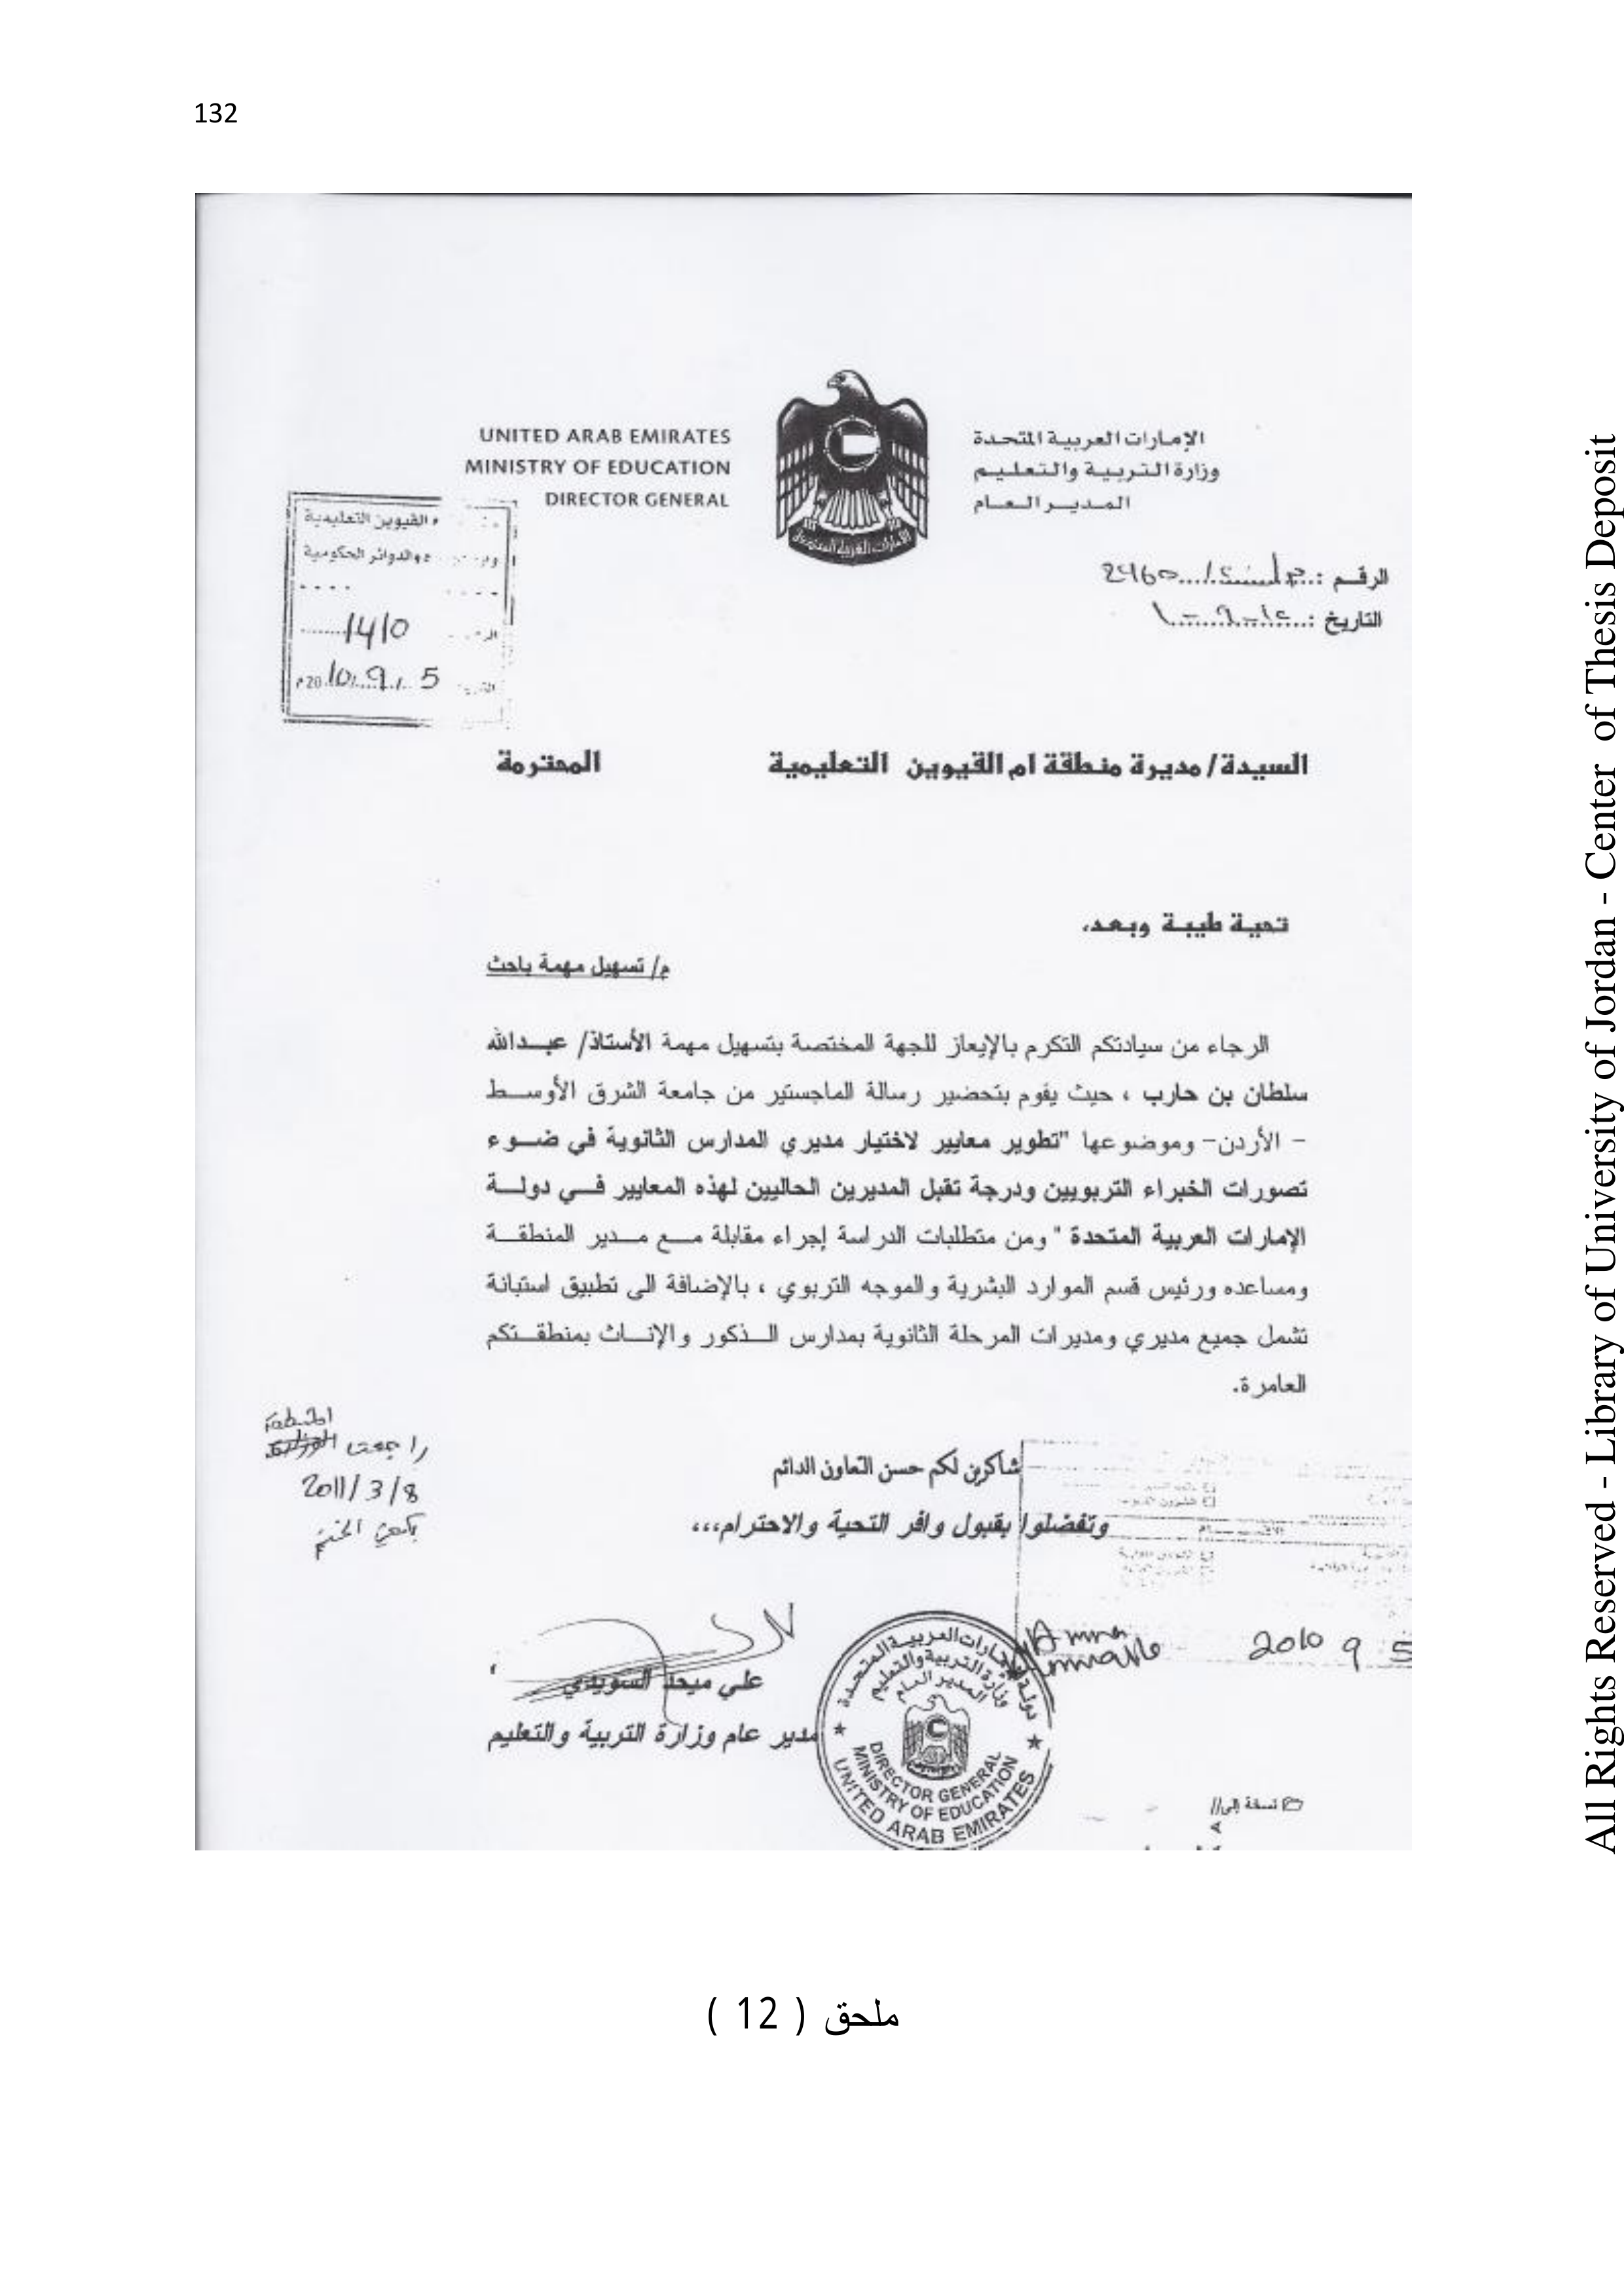 132
UNITED ARAB EMIRATES
MINISTRY OF EDUCATION
DIRECTOR GENERAL
الإمارات العربية المتحدة
وزارة التربية والتعليم
المدير العام
الرقم :
2460
التاريخ :
القيوين التعليمية
والدوائر الحكومية
1410
5 9 2010م
السيدة/ مديرة منطقة ام القيوين التعليمية المحترمة
تحية طيبة وبعد،
م/ تسهيل مهمة باحث
الرجاء من سيادتكم التكرم بالإيعاز للجهة المختصة بتسهيل مهمة الأستاذ/ عبدالله
سلطان بن حارب ، حيث يقوم بتحضير رسالة الماجستير من جامعة الشرق الأوسط
- الأردن- وموضوعها "تطوير معايير لاختيار مديري المدارس الثانوية في ضوء
تصورات الخبراء التربويين ودرجة تقبل المديرين الحاليين لهذه المعايير في دولة
الإمارات العربية المتحدة " ومن متطلبات الدراسة إجراء مقابلة مع مدير المنطقة
ومساعده ورئيس قسم الموارد البشرية والموجه التربوي ، بالإضافة الى تطبيق استبانة
تشمل جميع مديري ومديرات المرحلة الثانوية بمدارس الذكور والإناث بمنطقتكم
العامرة.
راجعت
2011/3/8
شاكرين لكم حسن التعاون الدائم
وتفضلوا بقبول وافر التحية والاحترام،،،
2010 9 5
علي ميحد السويدي
مدير عام وزارة التربية والتعليم
دولة الإمارات العربية المتحدة
وزارة التربية والتعليم
المدير العام
DIRECTOR GENERAL
MINISTRY OF EDUCATION
UNITED ARAB EMIRATES
نسخة إلى//
ملحق ( 12 )
All Rights Reserved - Library of University of Jordan - Center of Thesis Deposit